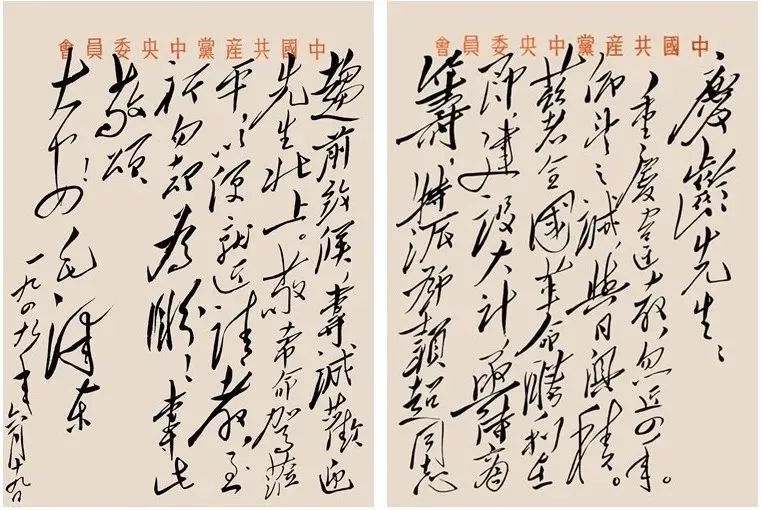 中國共産黨中央委員會
慶齡先生：
重慶違教，忽近四年。
仰望之誠，與日俱積。
茲者全國革命勝利在
即，建設大計，亟待商
籌，特派鄧穎超同志
中國共産黨中央委員會
趨前致候，專誠歡迎
先生北上。敬希命駕蒞
平，以便就近請教，至
祈勿却為盼！專此
敬頌
大安！
毛澤東
一九四九年六月十九日